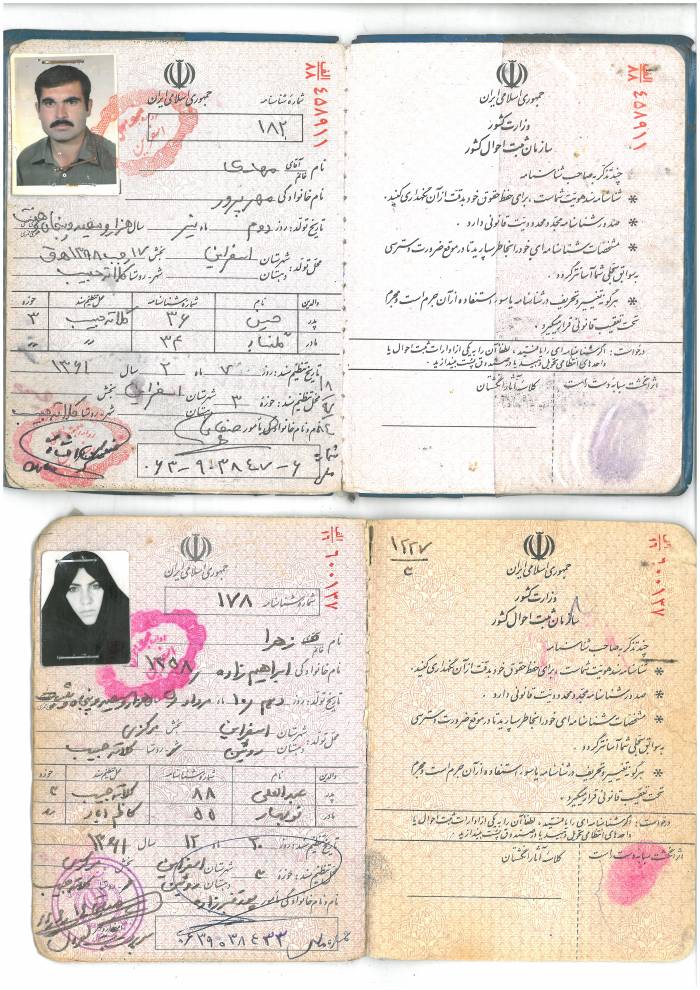 جمهوری اسلامی ایران
شماره شناسنامه
۱۸۲
نام آقای خانم مهدی
نام خانوادگی مهرپرور
تاریخ تولد: روز دوم ماه تیر سال هزار و سیصد و پنجاه و هفت
محل تولد: شهرستان اسفراین بخش
دهستان شهر - روستا کلاته حبیب
والدین نام شماره شناسنامه محل تنظیم سند حوزه
پدر حسن ۳۶ کلاته حبیب ۳
مادر گلنساء ۳۴ " "
تاریخ تنظیم سند: روز ۷ ماه ۲ سال ۱۳۶۱
محل تنظیم سند: حوزه ۳ شهرستان اسفراین بخش
دهستان شهر - روستا کلاته حبیب
نام و نام خانوادگی مامور
شماره ملی ۰۶۳-۹۰۳۸۴۷-۶
الف ۸۸ ۴۵۸۹۱۱
جمهوری اسلامی ایران
وزارت کشور
سازمان ثبت احوال کشور
چند تذکر به صاحب شناسنامه
* شناسنامه سند هویت شماست، برای حفظ حقوق خود به دقت از آن نگهداری کنید.
* صدور شناسنامه مجدد محدودیت قانونی دارد.
* مشخصات شناسنامه ای خود را بخاطر بسپارید تا در موقع ضرورت دسترسی
به سوابق سجلی شما آسانتر گردد.
* هرگونه تغییر و تحریف در شناسنامه یا سوء استفاده از آن جرم است و مجرم
تحت تعقیب قانونی قرار میگیرد.
درخواست: اگر شناسنامه ای را یافتید، لطفاً آن را به یکی از ادارات ثبت احوال یا
واحدهای انتظامی تحویل دهید یا در صندوق پست بیندازید.
اثر انگشت سبابه دست است کلاسه آثار انگشتان
الف ۸۸ ۴۵۸۹۱۱
جمهوری اسلامی ایران
شماره شناسنامه ۱۷۸
نام خانم زهرا
نام خانوادگی ابراهیم زاده
۱۳۵۸
تاریخ تولد: روز دهم ماه مرداد
محل تولد: شهرستان اسفراین بخش مرکزی
دهستان روئین شهر - روستا کلاته حبیب
والدین نام شماره شناسنامه محل تنظیم سند حوزه
پدر عبدالعلی ۸۸ کلاته حبیب ۴
مادر نوبهار ۵۵
تاریخ تنظیم سند: روز ۲۰ ماه ۱۲ سال ۱۳۶۱
محل تنظیم سند: حوزه ۴ شهرستان اسفراین بخش مرکزی
دهستان روئین شهر - روستا کلاته حبیب
نام و نام خانوادگی مامور
شماره ملی ۰۶۳۹۰۳۸۴۳۳
الف ۱۲ ۶۰۰۱۳۷
۱۲۲۷
جمهوری اسلامی ایران
وزارت کشور
سازمان ثبت احوال کشور
چند تذکر به صاحب شناسنامه
* شناسنامه سند هویت شماست، برای حفظ حقوق خود به دقت از آن نگهداری کنید.
* صدور شناسنامه مجدد محدودیت قانونی دارد.
* مشخصات شناسنامه ای خود را بخاطر بسپارید تا در موقع ضرورت دسترسی
به سوابق سجلی شما آسانتر گردد.
* هرگونه تغییر و تحریف در شناسنامه یا سوء استفاده از آن جرم است و مجرم
تحت تعقیب قانونی قرار میگیرد.
درخواست: اگر شناسنامه ای را یافتید، لطفاً آن را به یکی از ادارات ثبت احوال یا
واحدهای انتظامی تحویل دهید یا در صندوق پست بیندازید.
اثر انگشت سبابه دست است کلاسه آثار انگشتان
الف ۱۲ ۶۰۰۱۳۷